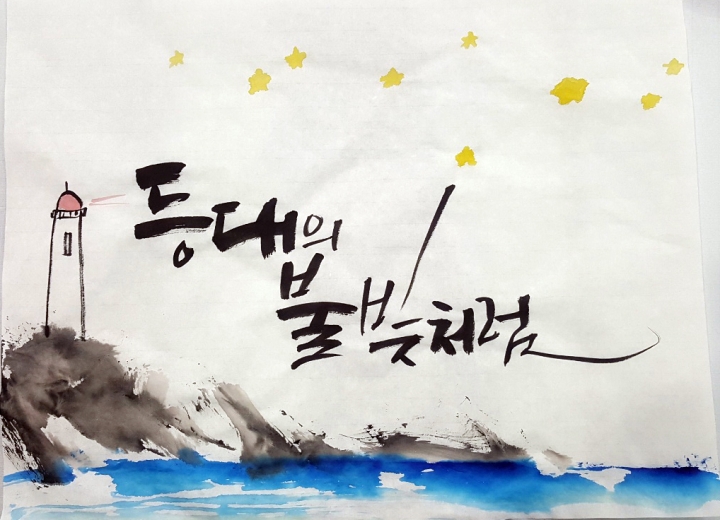 등대의
불빛처럼